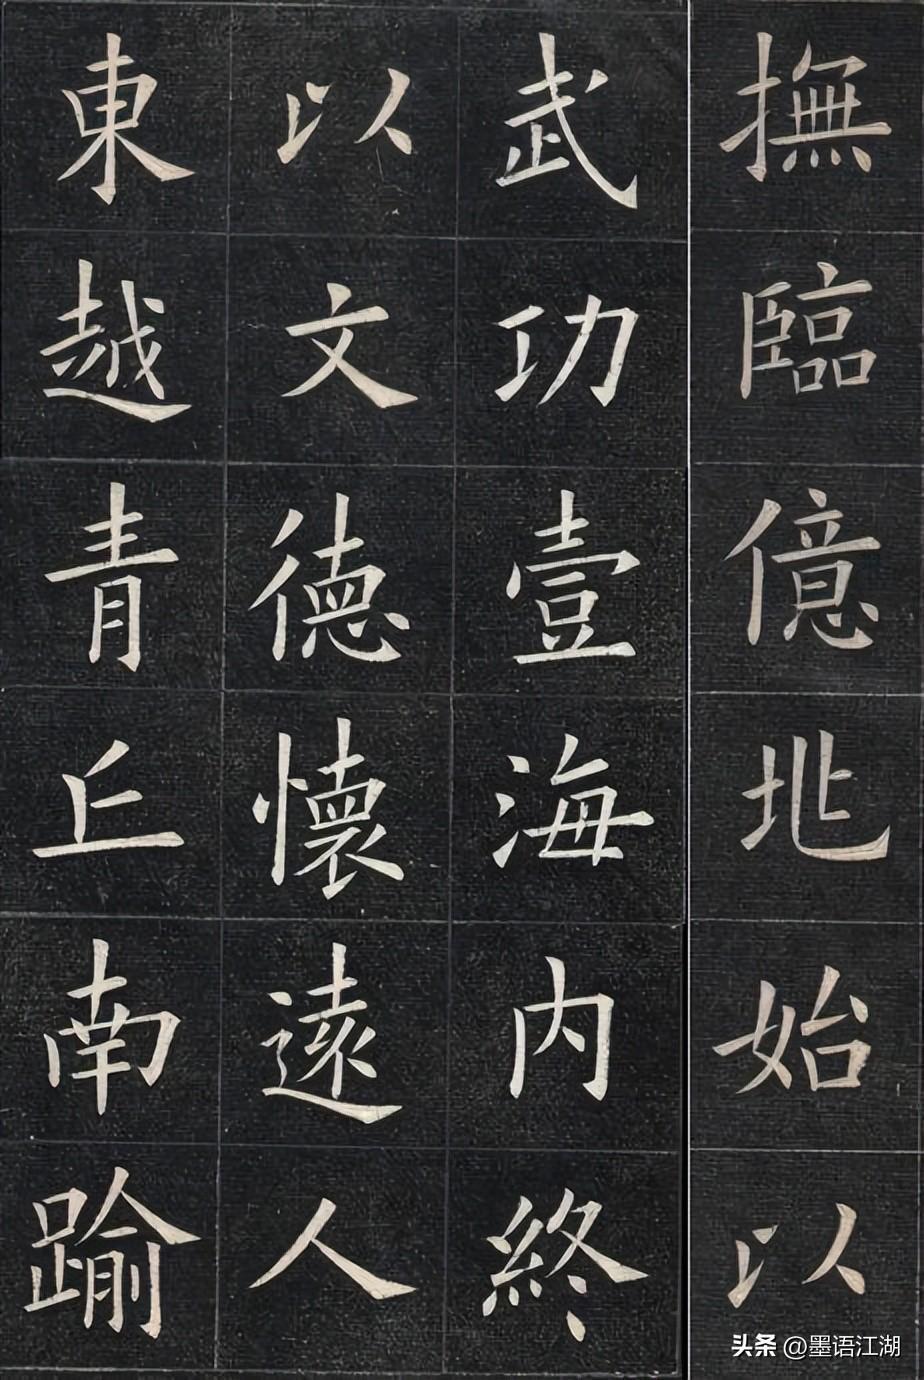 撫臨億兆始以
武功壹海内終
以文德懷遠人
東越青丘南踰
头条 @墨语江湖